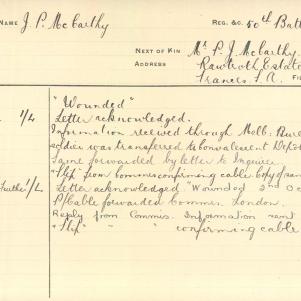 NAME J. P. McCarthy REG. &c. 50th Batt
NEXT OF KIN Mr. P. J. McCarthy
ADDRESS Rawtroth Estate
Frances. S. A. FI
"Wounded"
1/4 Letter acknowledged.
Information received through Melb. Bure
soldier was transferred to Convalescent Depot
Same forwarded by letter to Inquirer.
"Slip" from Commis confirming cable. Copy of same
Further 1/4 Letter acknowledged. "Wounded 2nd O
P/Cable forwarded Commis. London.
Reply from Commis. Information sent
"Slip" " " confirming cable